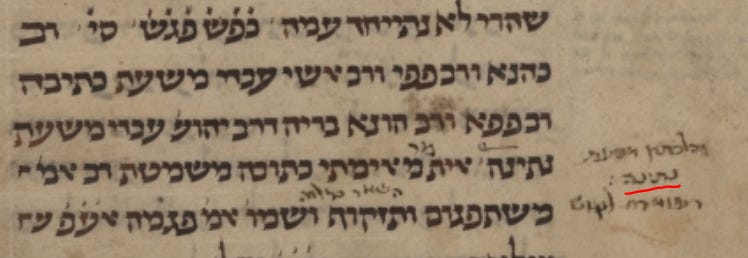 שהרי לא נתייחד עמה כ'פ'ש' פ'ג'ש' סי' רב
כהנא ורב פפי ורב אשי עבדי משעת כתיבה
רב פפא ורב הונא בריה דרב יהוש' עבדי משעת
נתינה אית'מ' מאימתי כתובה משמטת רב אמ'
משתפגום ותזקוף ושמו' אמ' פגמה אע'פ'
והלכתא משעת
נתינה